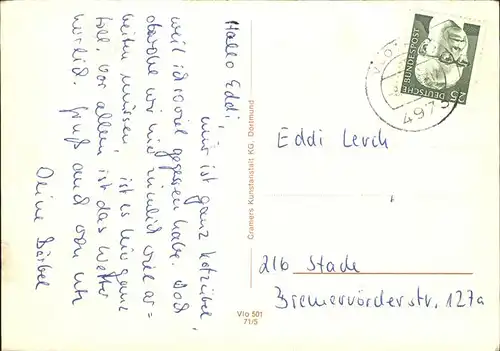 Hallo Eddi,
mir ist ganz kotzübel,
weil ich soviel gegessen habe. Und
obwohl wir hier ziemlich viel ar=
beiten müssen, ist es hier ganz
toll, vor allem ist das Wetter
herrlich. Gruß auch von Ute
Deine Bärbel
Cramers Kunstanstalt KG. Dortmund
Vlo 501
71/5
DEUTSCHE BUNDESPOST
25
4973
Eddi Lerch
216 Stade
Bremervörderstr. 127a